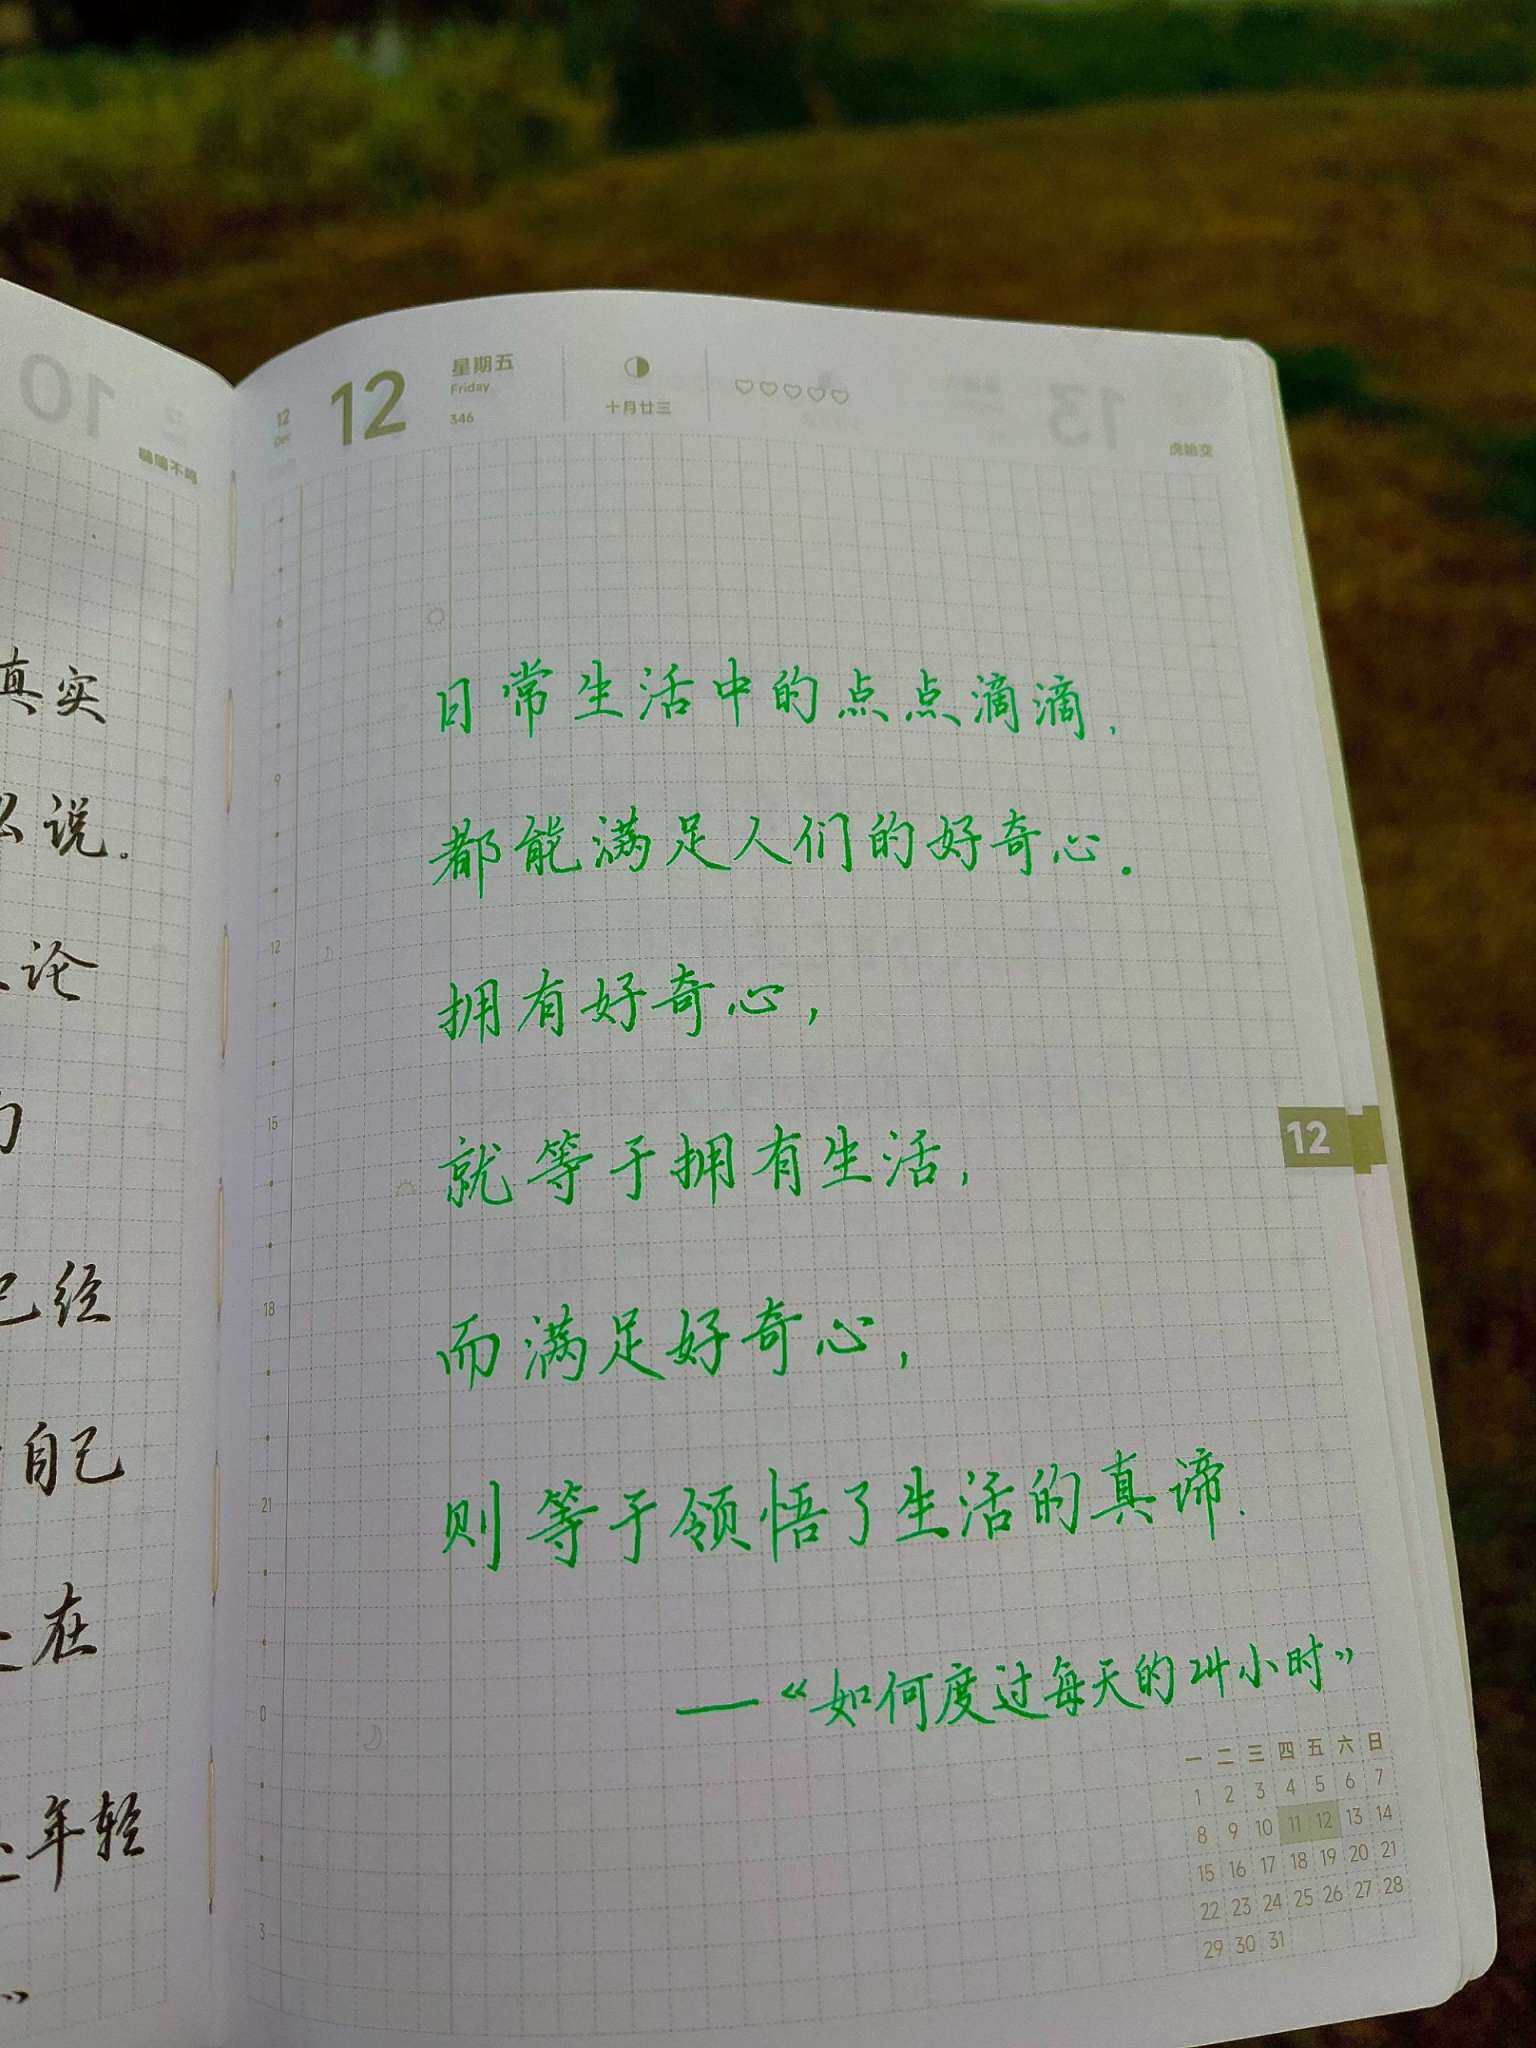 10
鶡鴠不鸣
真实
说。
论
已经
自己
在
年轻
”
12
Dec
12
星期五
Friday
346
十月廿三
虎始交
13
6
9
12
15
18
21
0
3
日常生活中的点点滴滴,
都能满足人们的好奇心.
拥有好奇心,
就等于拥有生活,
而满足好奇心,
则等于领悟了生活的真谛.
——《如何度过每天的24小时》
12
一 二 三 四 五 六 日
1 2 3 4 5 6 7
8 9 10 11 12 13 14
15 16 17 18 19 20 21
22 23 24 25 26 27 28
29 30 31